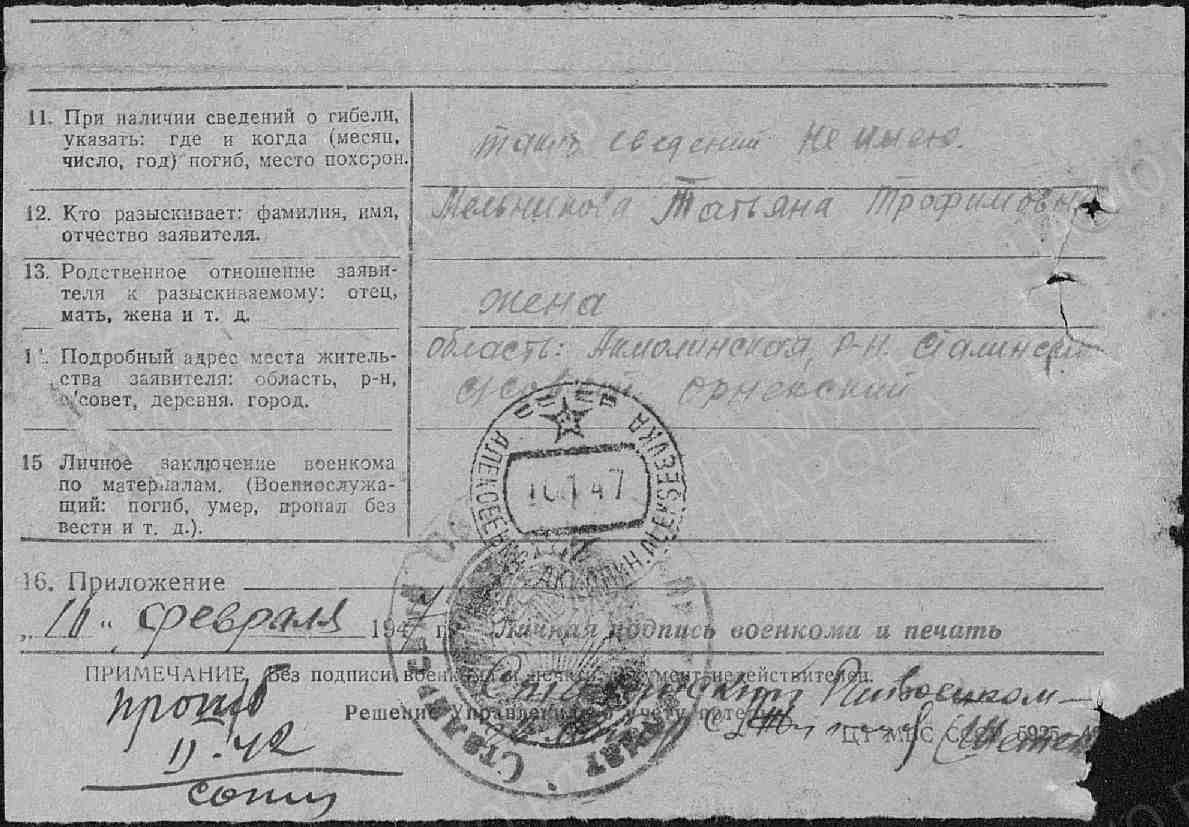 11. При наличии сведений о гибели,
указать: где и когда (месяц,
число, год) погиб, место похорон.
сведений не имею.
12. Кто разыскивает: фамилия, имя,
отчество заявителя.
Мельникова Татьяна Трофимовна
13. Родственное отношение заяви-
теля к разыскиваемому: отец,
мать, жена и т. д.
жена
Подробный адрес места житель-
ства заявителя: область, р-н,
с/совет, деревня. город.
область: Акмолинская, р-н. Сталинский
с/совет орнекский
15 Личное заключение военкома
по материалам. (Военнослужа-
щий: погиб, умер, пропал без
вести и т. д.).
АЛЕКСЕЕВКА ALEKSEEVKA
47
16. Приложение
февраля 1947 г. Личная подпись военкома и печать
ПРИМЕЧАНИЕ. Без подписи военкома и печати документ недействителен.
Решение Управления по учету потерь
Сталинский Райвоенком
42
ПАМЯТЬ
НАРОДА